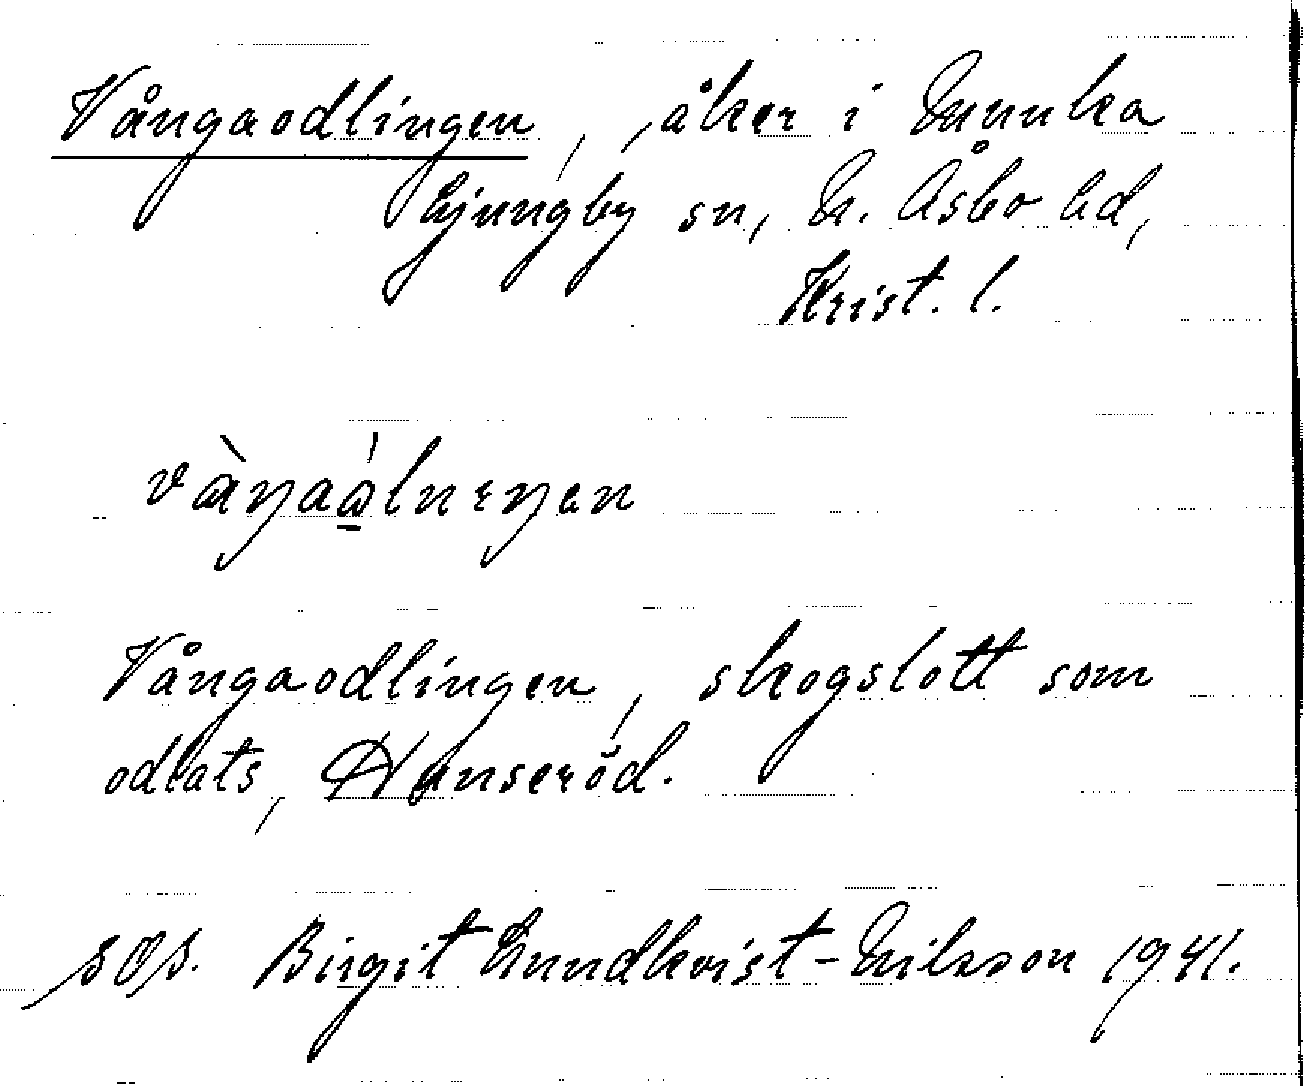 Vångaodlingen, åker i Munka
Ljungby sn, N. Åsbo hd,
Krist. l.
vàŋaålneŋen
Vångaodlingen, skogslott som
odlats, Hunseröd.
SOS. Birgit Lundkvist-Nilsson 1941.